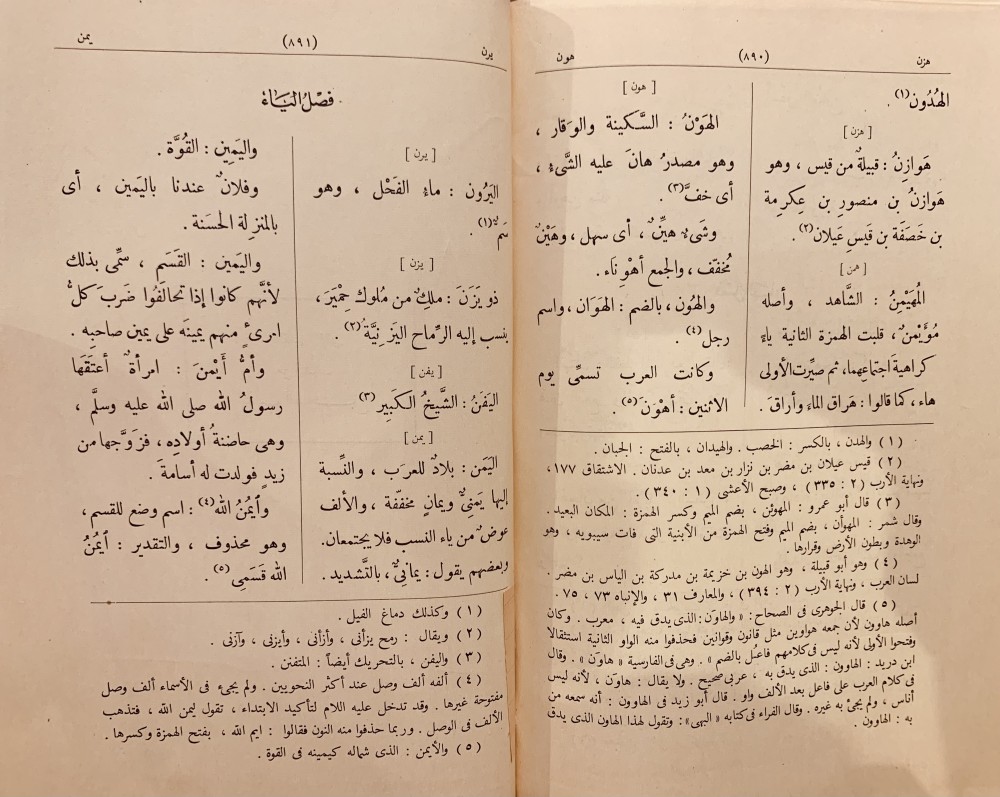 هزن
(٨٩٠)
هون
الهُدُون(١).
[ هزن ]
هَوازِنُ : قبيلةٌ من قيس ، وهو
هَوازنُ بن منصورِ بن عِكرِمة
بن خَصَفَة بن قَيسِ عَيلان(٢).
[ همن ]
المُهَيْمِنُ : الشَّاهد ، وأصله
مُؤَيْمنٌ، قلبت الهمزة الثانية ياءً
كراهيةَ اجتماعِهما، ثم صيِّرت الأولى
هاء ، كما قالوا : هَراق الماءَ وأراقَ .
[ هون ]
الهَوْنُ : السَّكينة والوَقار ،
وهو مصدرُ هانَ عليه الشَّىءُ ،
أى خفَّ(٣).
وشَىءٌ هيِّنٌ ، أى سهل ، وهَيْنٌ
مُخفَّف ، والجمع أهوِنَاء .
والهُون ، بالضم : الهَوَان ، واسم
رجل(٤).
وكانت العرب تسمِّى يوم
الاثنين : أهْوَنَ(٥).
(١) والهدن ، بالكسر : الخصب . والهيدان ، بالفتح : الجبان .
(٢) قيس عيلان بن مضر بن نزار بن معد بن عدنان . الاشتقاق ١٧٧ ،
ونهاية الأرب (٢ : ٣٣٥) ، وصبح الأعشى (١ : ٣٤٠) .
(٣) قال أبو عمرو : المهوئن ، بضم الميم وكسر الهمزة : المكان البعيد .
وقال شمر : المهوأن ، بضم الميم وفتح الهمزة من الأبنية التى فات سيبويه ، وهو
الوهدة وبطون الأرض وقرارها .
(٤) وهو أبو قبيلة ، وهو الهون بن خزيمة بن مدركة بن الياس بن مضر .
لسان العرب ، ونهاية الأرب (٢ : ٣٩٤) ، والمعارف ٣١ ، والإنباه ٧٣ ، ٧٥ .
(٥) قال الجوهرى فى الصحاح : «والهاوَن : الذى يدق فيه ، معرب . وكان
أصله هاوون لأن جمعه هواوين مثل قانون وقوانين فحذفوا منه الواو الثانية استثقالا
وفتحوا الأولى لأنه ليس فى كلامهم فاعُل بالضم » . وهى فى الفارسية « هاوَن » . وقال
ابن دريد : الهاوون : الذى يدق به ، عربى صحيح . ولا يقال : هاوَن ، لأنه ليس
فى كلام العرب على فاعل بعد الألف واو . قال أبو زيد فى الهاوون : أنه سمعه من
أناس ، ولم يجئ به غيره . وقال الفراء فى كتابه « البهى» : وتقول لهذا الهاون الذى يدق
به : الهاوون .
يرن
(٨٩١)
يمن
فصْلُ اليَاءِ
[ يرن ]
اليَرُون : ماءُ الفَحْل ، وهو
سَمٌّ(١).
[ يزن ]
ذو يَزَنَ : ملكٌ من مُلوك حِمْيَرَ ،
ينسب إليه الرِّماح اليَزَنِيَّةُ(٢).
[ يفن ]
اليَفَنُ : الشَّيخُ الكَبِير(٣)
[ يمن ]
اليَمَن : بلادٌ للعرَب ، والنِّسبة
إليها يَمَنِىٌّ ويمانٍ مخفَّفة ، والألف
عوضٌ من ياء النسب فلا يجتمعان.
وبعضهم يقول : يمانىٌّ ، بالتَّشديد .
واليَمِين : القُوَّة .
وفلانٌ عندنا باليَمين ، أى
بالمنزلة الحسَنة .
واليَمين : القَسَم ، سمِّى بذلك
لأنَّهم كانوا إذا تحالَفُوا ضَرَبَ كلُّ
امرئٍ منهم يمينَه على يمين صاحبِه .
وأمُّ أَيْمَنَ : امرأةٌ أعتَقَها
رسولُ الله صلى الله عليه وسلَّم ،
وهى حاضنةُ أولادِه ، فزوَّجها من
زيدٍ فولدت له أسامةَ .
وَٱيمُنُ الله(٤) : اسم وضع للقسم ،
وهو محذوف ، والتقدير : ٱيمُنُ
الله قَسَمِى(٥).
(١) وكذلك دماغ الفيل .
(٢) ويقال : رمح يزأنى ، وأزأنى ، وأيزنى ، وآزنى .
(٣) واليفن ، بالتحريك أيضاً : المتفنن .
(٤) ألفه ألف وصل عند أكثر النحويين . ولم يجئ فى الأسماء ألف وصل
مفتوحة غيرها . وقد تدخل عليه اللام لتأكيد الابتداء ، تقول ليمن الله ، فتذهب
الألف فى الوصل . وربما حذفوا منه النون فقالوا : ايم الله ، بفتح الهمزة وكسرها .
(٥) والأيمن : الذى شماله كيمينه فى القوة .